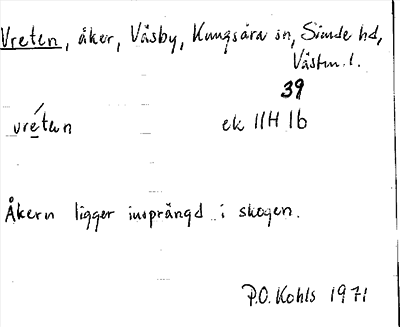 Vreten, åker, Väsby, Kungsåra sn, Siende hd,
Västm. l.
39
vretan ek 11H 1b
Åkern ligger insprängd i skogen.
P.O. Kohls 1971